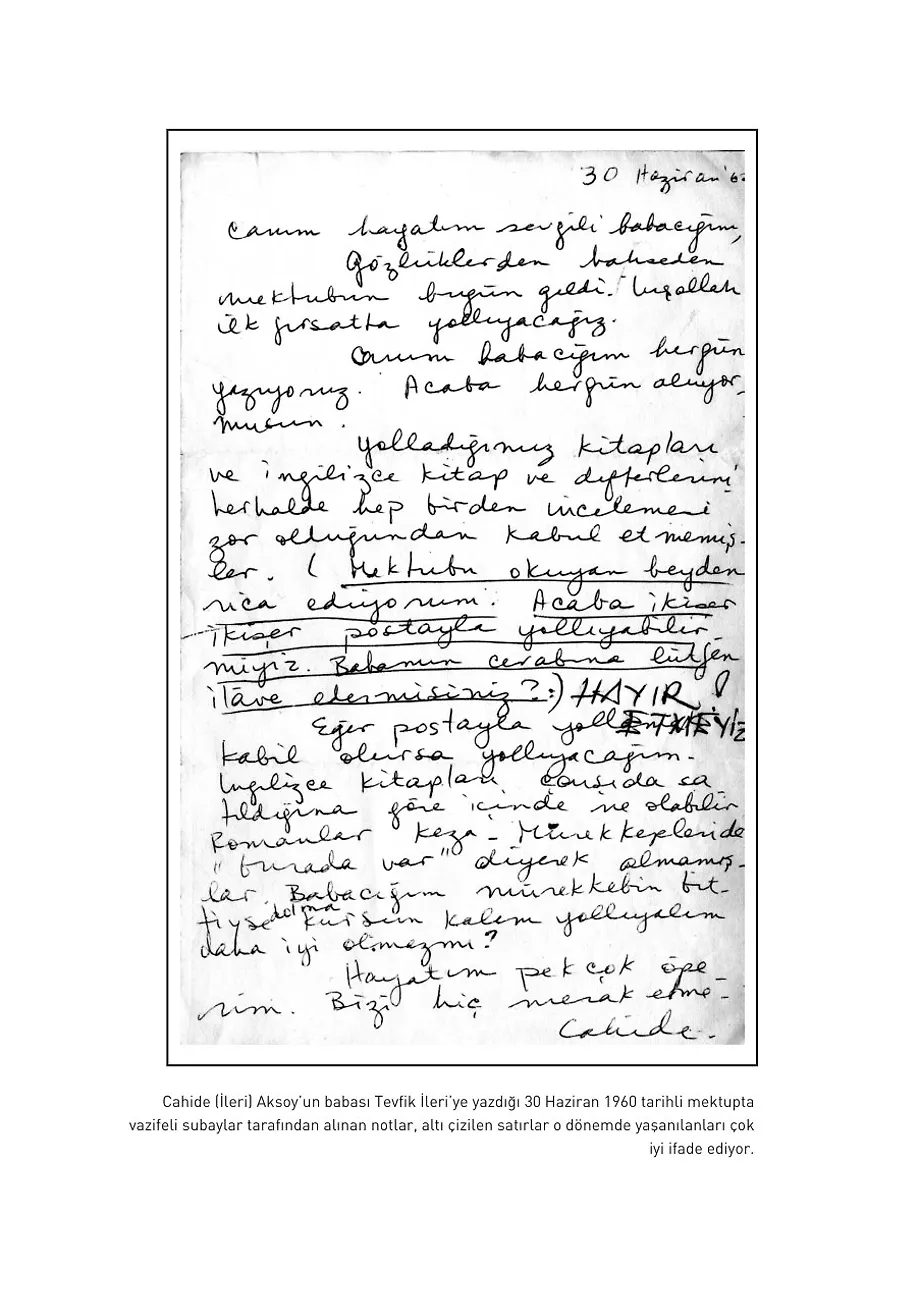 30 Haziran '6
Canım hayatım sevgili babacığım,
Gözlüklerden bahseden
mektubun bugün geldi. İnşallah
ilk fırsatta yollıyacağız.
Canım babacığım hergün
yazıyoruz. Acaba hergün alıyor
musun.
Yolladığımız kitapları
ve ingilizce kitap ve defterlerini
herhalde hep birden incelemesi
zor olduğundan kabul etmemiş-
ler. ( Mektubu okuyan beyden
rica ediyorum. Acaba ikişer
ikişer postayla yollıyabilir
miyiz. Babamın cevabına lütfen
ilâve edermisiniz?:) HAYIR!
Eğer postayla
kabil olursa yollıyacağım.
İngilizce kitapları çarşıda sa
tıldığına göre içinde ne olabilir
Romanlar keza - Mürekkepleride
"burada var" diyerek almamış-
lar. Babacığım mürekkebin bit-
tiyse dolma kurşun kalem yollıyalım
daha iyi olmazmı?
Hayatım pek çok öpe
rim. Bizi hiç merak etme -
Cahide.
Cahide (İleri) Aksoy'un babası Tevfik İleri'ye yazdığı 30 Haziran 1960 tarihli mektupta
vazifeli subaylar tarafından alınan notlar, altı çizilen satırlar o dönemde yaşanılanları çok
iyi ifade ediyor.